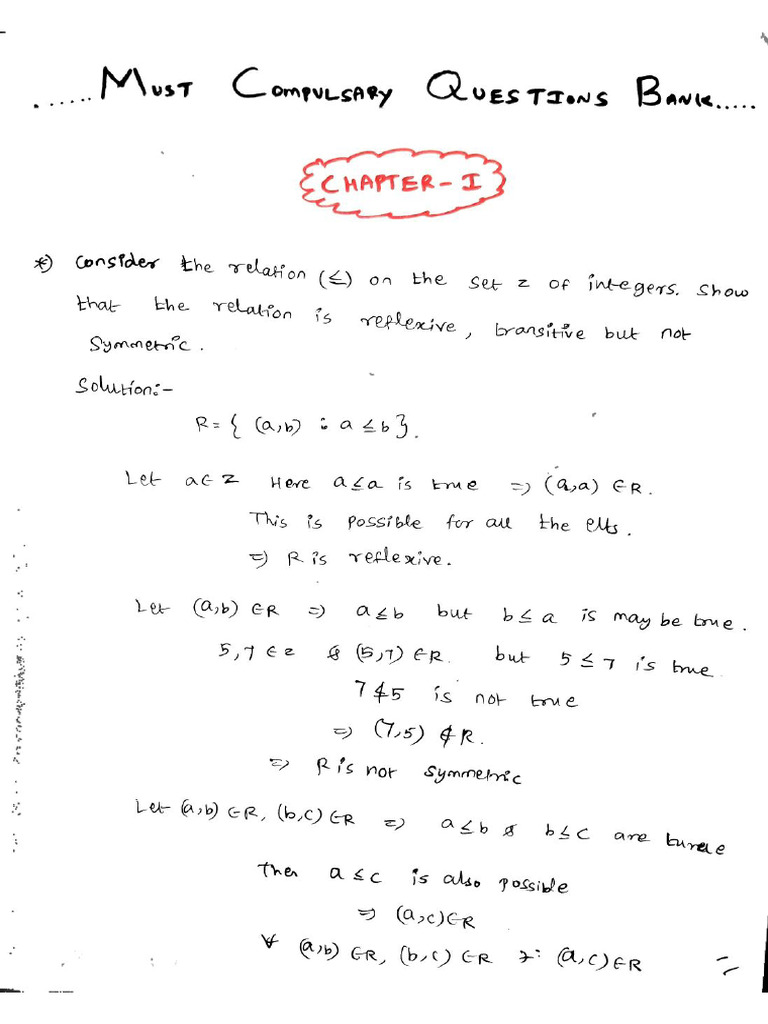 ...... MUST COMPULSARY QUESTIONS BANK.....
CHAPTER-I
*) Consider the relation (≤) on the set z of integers. Show
that the relation is reflexive, transitive but not
Symmetric.
Solution:-
R = { (a,b) : a ≤ b}.
Let a∈Z Here a≤a is true => (a,a) ∈R.
This is possible for all the elts.
=> R is reflexive.
Let (a,b) ∈R => a≤b but b≤a is may be true.
5,7 ∈ z & (5,7) ∈R. but 5 ≤ 7 is true
7≰5 is not true
=> (7,5) ∉ R.
=> R is not symmetric
Let (a,b) ∈R, (b,c) ∈R => a≤b & b≤c are
Then a ≤ c is also possible
=> (a,c)∈R
∀ (a,b) ∈R, (b,c) ∈R (a,c)∈R